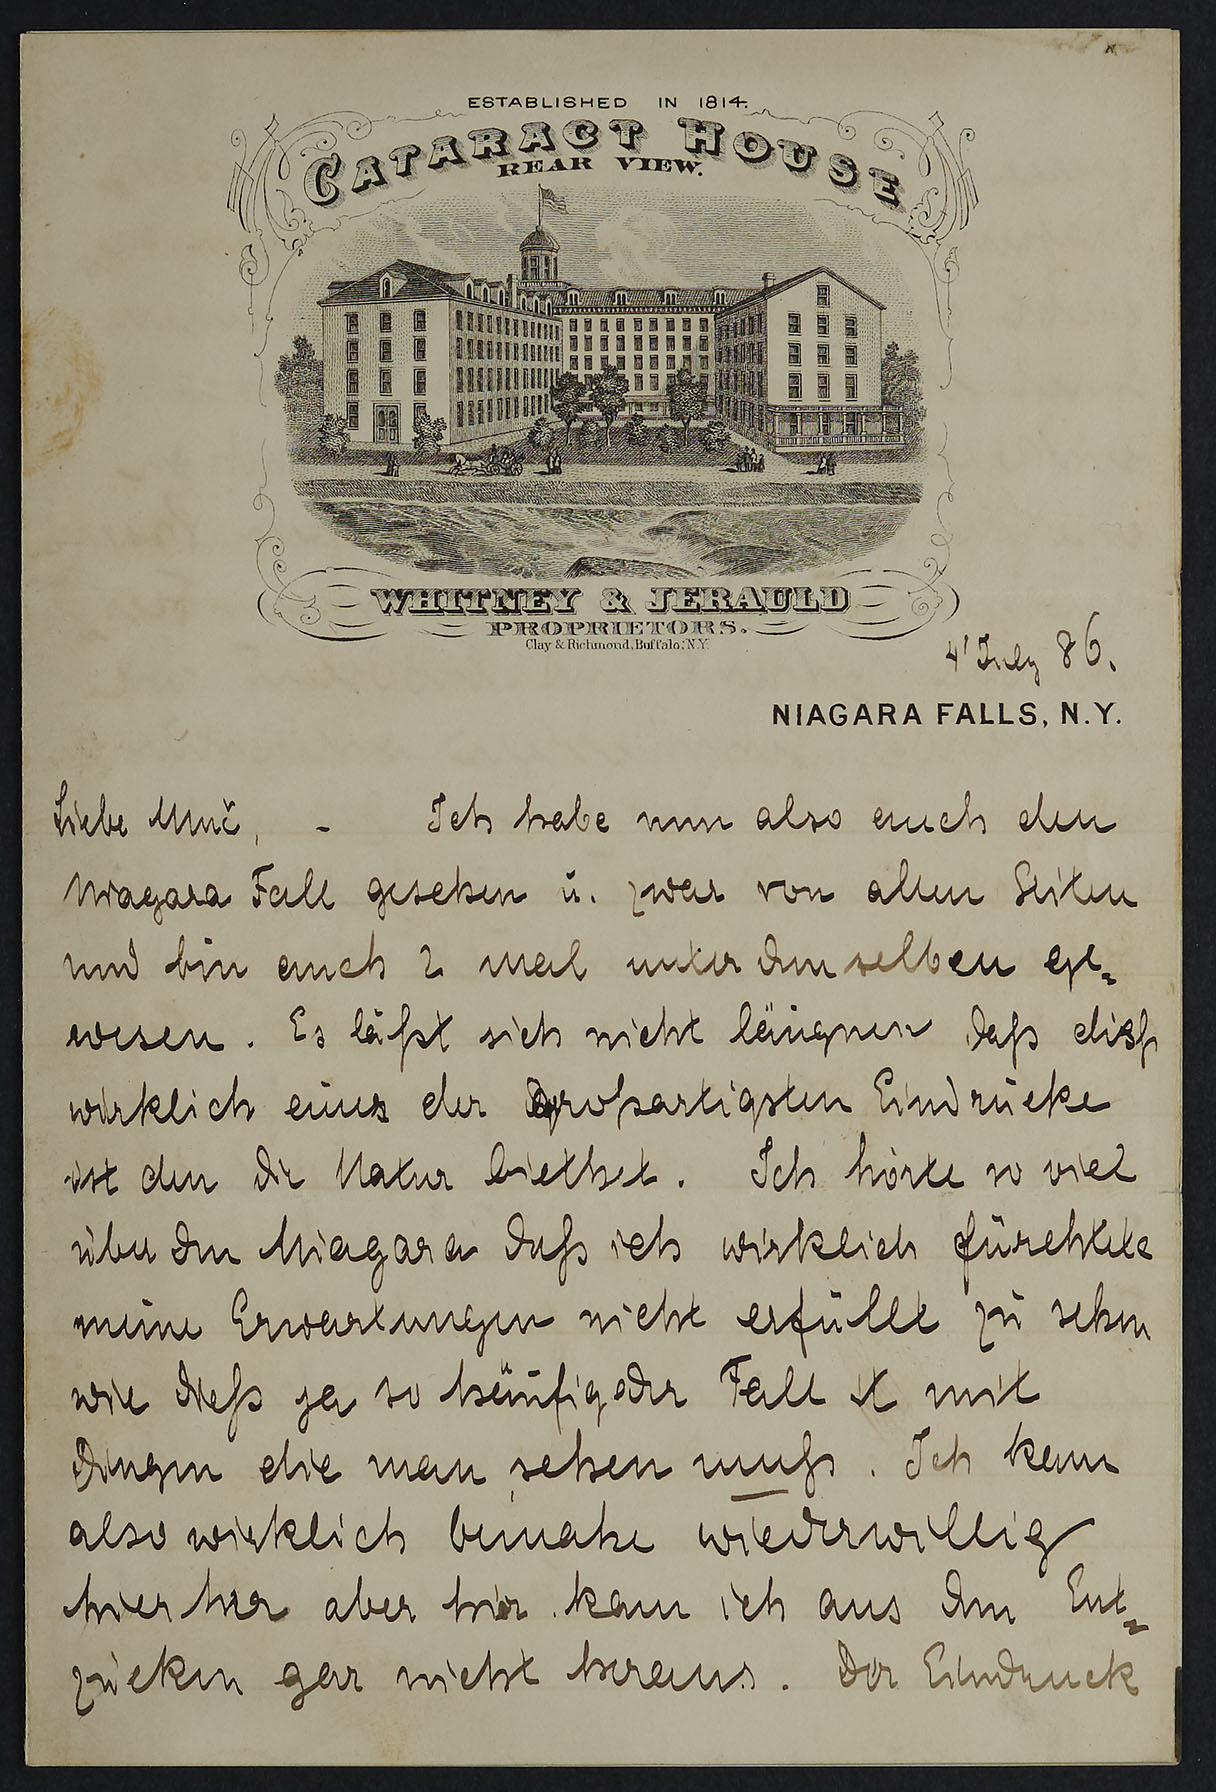 ESTABLISHED IN 1814.
CATARACT HOUSE
REAR VIEW.
WHITNEY & JERAULD
PROPRIETORS.
Clay & Richmond, Buffalo, N.Y.
4' July 86.
NIAGARA FALLS, N.Y.
Liebe Muč, - Ich habe nun also auch den
Niagara Fall gesehen u. zwar von allen Seiten
und bin auch 2 mal unter demselben ge=
wesen. Es läßt sich nicht läugnen daß dieß
wirklich eines der großartigsten Eindrücke
ist den die Natur biethet. Ich hörte so viel
über den Niagara daß ich wirklich fürchtete
meine Erwartungen nicht erfüllt zu sehen
wie dieß ja so häufig der Fall ist mit
Dingen die man sehen muß. Ich kam
also wirklich beinahe wiederwillig
hier her aber hier kam ich aus dem Ent=
zücken gar nicht heraus. Der Eindruck